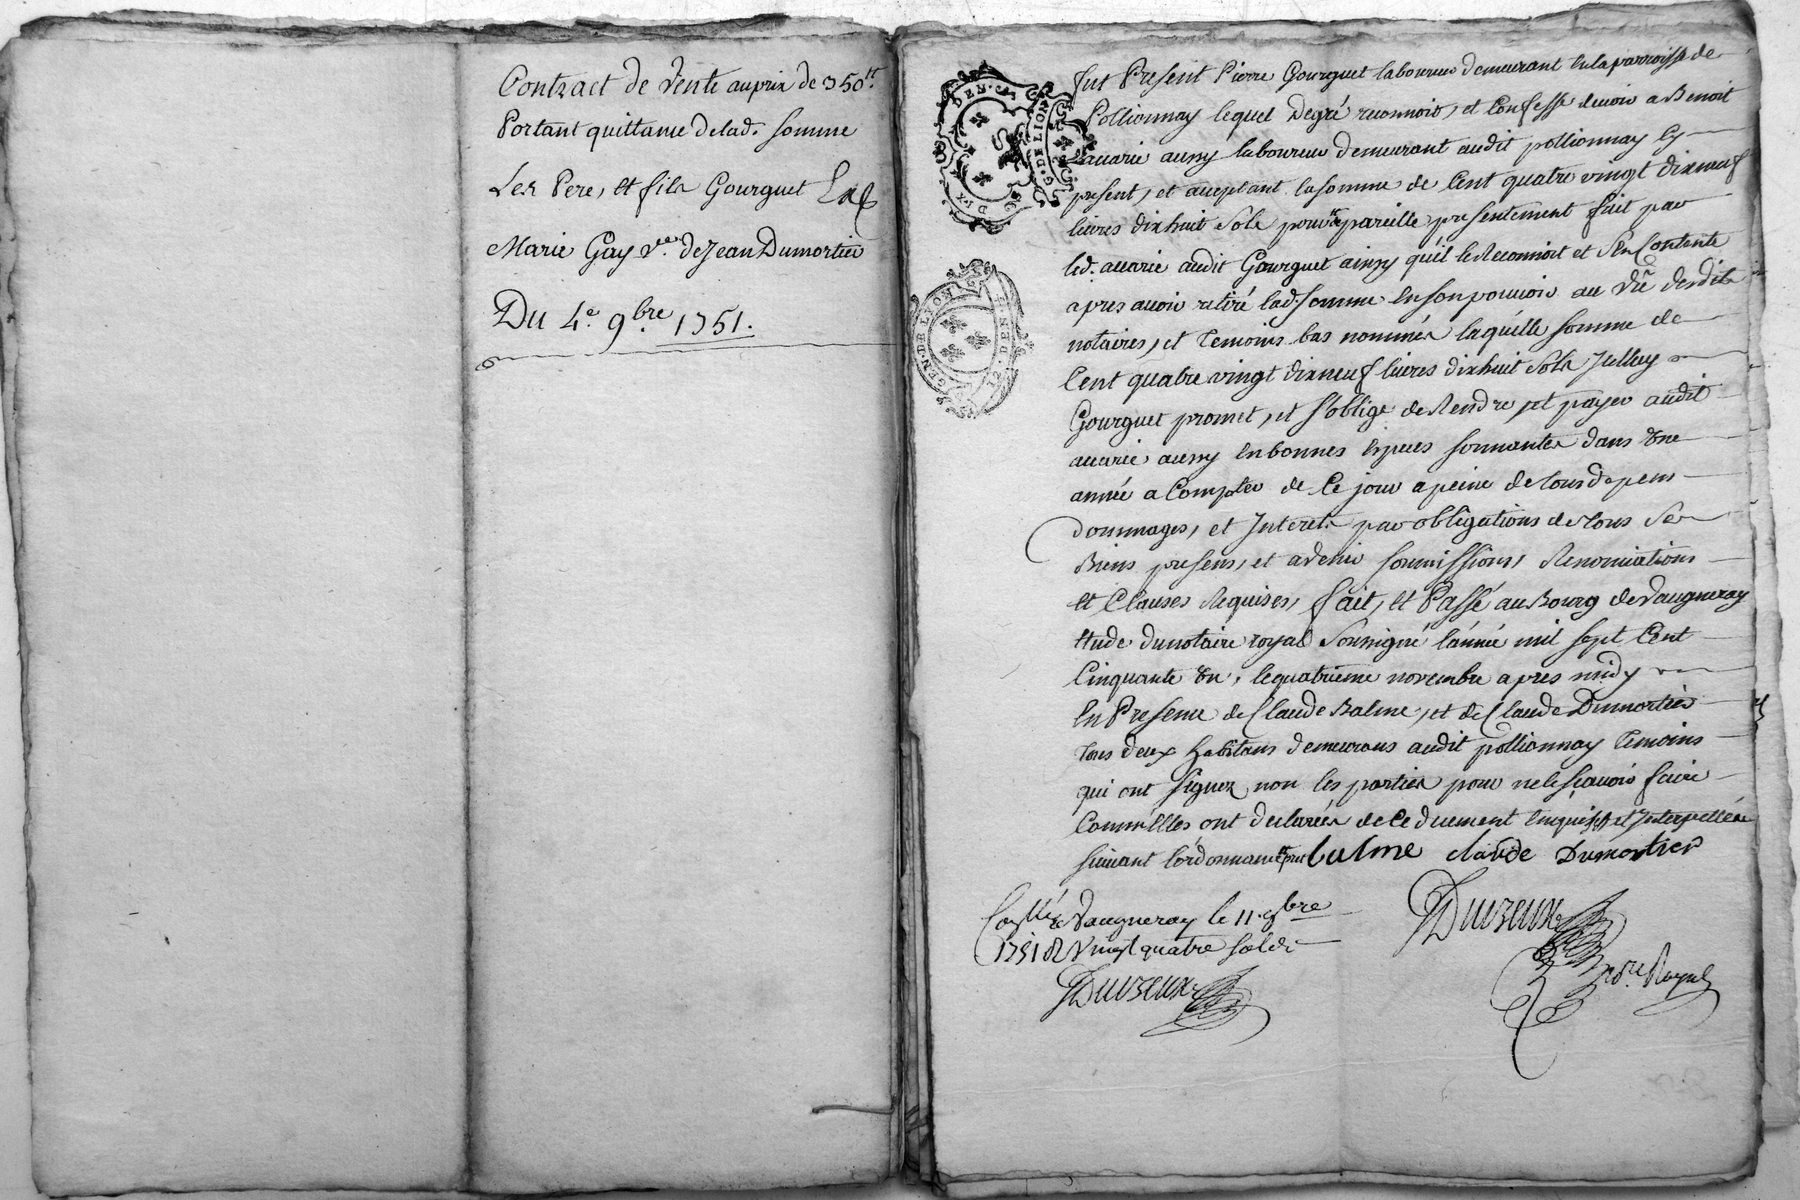 Contract de Vente au prix de 350tt.
Portant quittance de lad. somme
Les Pere, et fils Gourguet
Marie Gay Ve. de Jean Dumortier
Du 4e. 9bre. 1751.
GEN. DE LION
DEN.
DIX
GEN. DE LYON
12. DENIERS
fut Present Pierre Gourguet laboureur demeurant en la parroisse de
Pollionnay lequel Degré reconnoit, et Confesse devoir a Benoit
accarie aussy laboureur demeurant audit pollionnay Cy
present, et acceptant la somme de Cent quatre vingt dixneuf
livres dixhuit Sols pour pareille presentement fait par
led. accarie audit Gourguet ainsy qu'il le Reconnoit et S'en Contente
apres avoir retiré lad. somme en son pouvoir au Vû desdits
notaires, et temoins bas nommés laquelle somme de
Cent quatre vingt dixneuf livres dixhuit Sols Jcelluy
Gourguet promet, et s'oblige de Rendre, et payer audit
accarie aussy en bonnes especes sonnantes dans Une
année a Compter de Ce jour a peine de tous depens
dommages, et Jnterets par obligations de tous Ses
Biens presens, et avenir soumissions, Renonciations
et Clauses Requises, fait, et Passé au Bourg de Vaugneray
etude du notaire royal Soussigné l'année mil sept Cent
Cinquante Un, le quatrieme novembre apres midy
En Presence de Claude Balme, et de Claude Dumortier
tous deux habitans demeurans audit pollionnay temoins
qui ont signez non les parties pour ne le sçavoir faire
Comm'Elles ont declarées de Ce duement enquises et Jnterpellées
suivant l'ordonnance balme claude Dumortier
Conllé a Vaugneray le 11. 9bre
1751 R Vingt quatre sols
Duvzeux
Duvzeux
nore. Royal